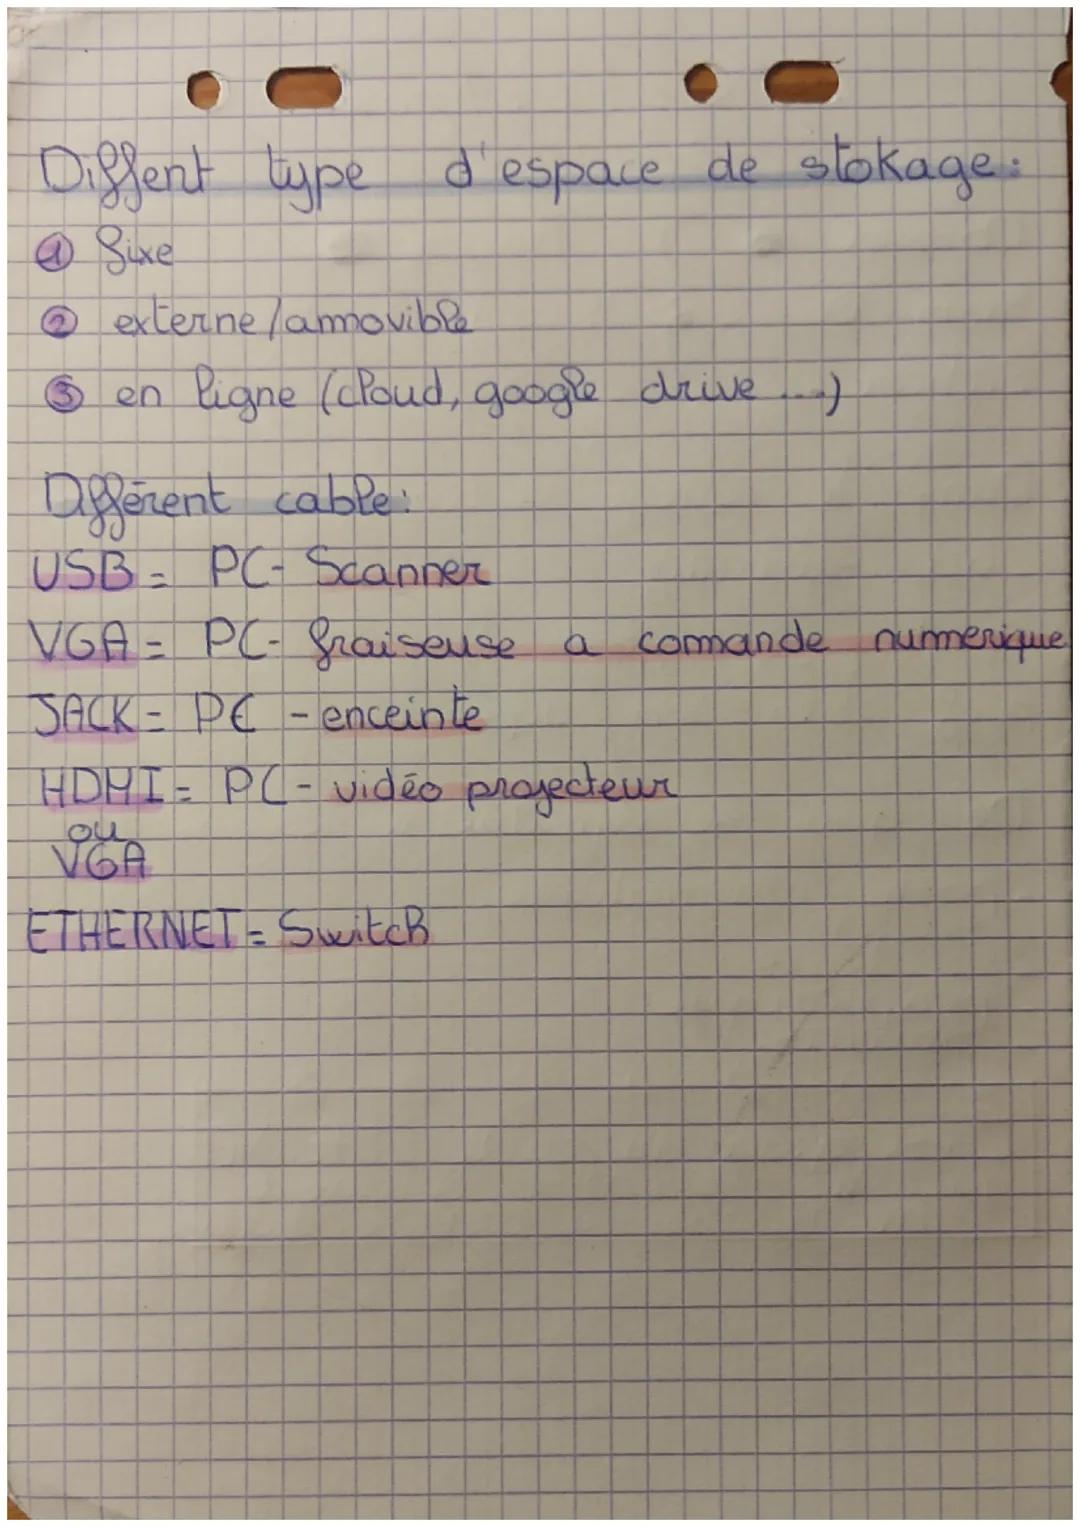 Diffent type d'espace de stokage:
① fixe
② externe/ammovible
③ en ligne (cloud, google drive ...)
Différent cable:
USB = PC - Scanner
VGA = PC - fraiseuse a commande numerique
JACK = PC - enceinte
HDMI = PC - vidéo projecteur
ou
VGA
ETHERNET = Switch